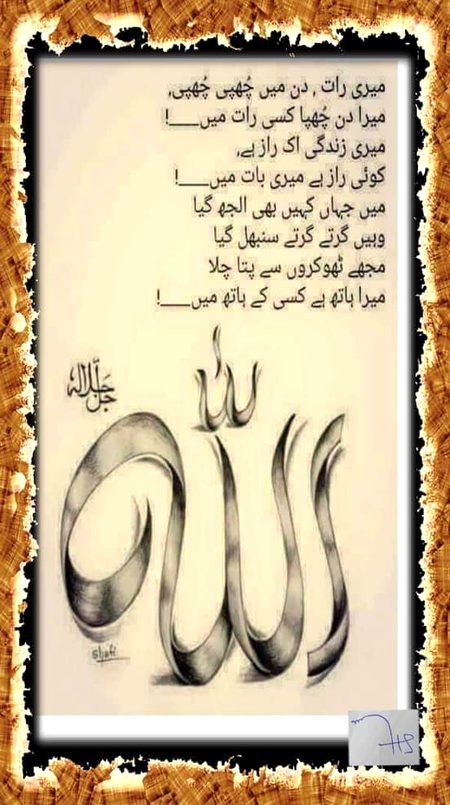 میری رات , دن میں چُھپی چُھپی,
میرا دن چُھپا کسی رات میں___!
میری زندگی اک راز ہے,
کوئی راز ہے میری بات میں___!
میں جہاں کہیں بھی الجھ گیا
وہیں گرتے گرتے سنبھل گیا
مجھے ٹھوکروں سے پتا چلا
میرا ہاتھ ہے کسی کے ہاتھ میں___!
جل جلالہ
الله
Shafi